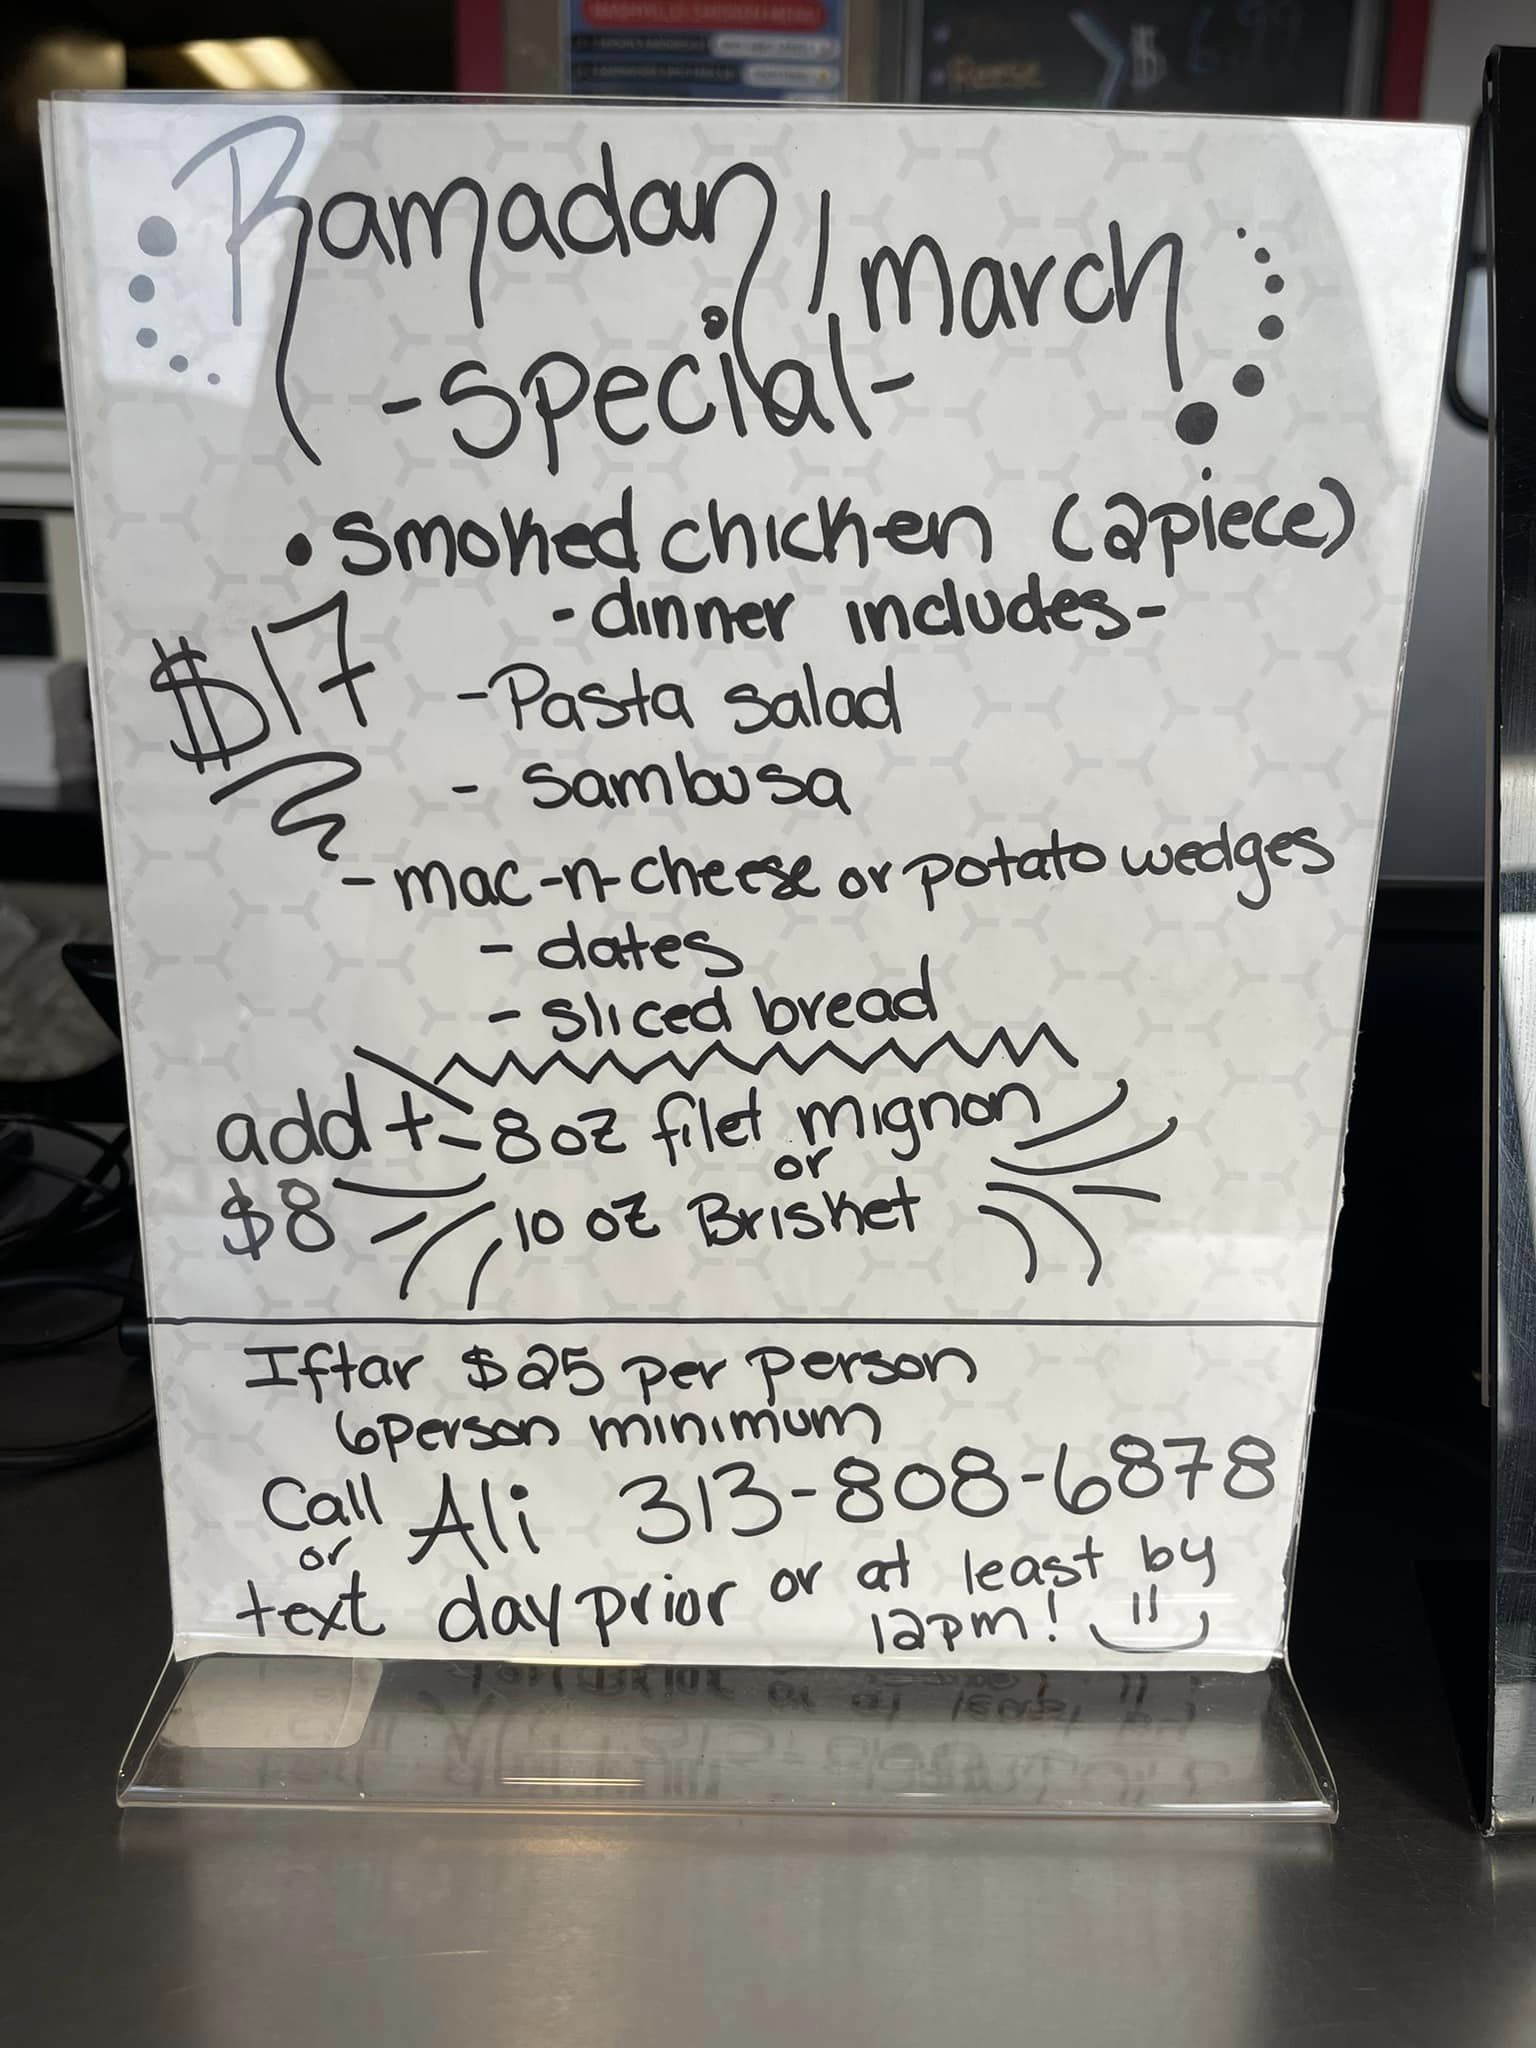 $ 6.99
Reese
Ramadan / March
-Special-
• Smoked chicken (2piece)
-dinner includes-
$17
-Pasta salad
- Sambusa
- mac-n-cheese or potato wedges
- dates
- sliced bread
add + - 8 oz filet mignon
or
$8 10 oz Brisket
Iftar $25 per person
6person minimum
Call Ali 313-808-6878
or
text day prior or at least by
12pm!